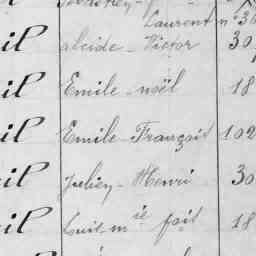 Laurent n° 30
il alcide - Victor 30
il Emile - noël 18
il Emile - François 102
il Julien - Henri 30
il Louis m ie 18